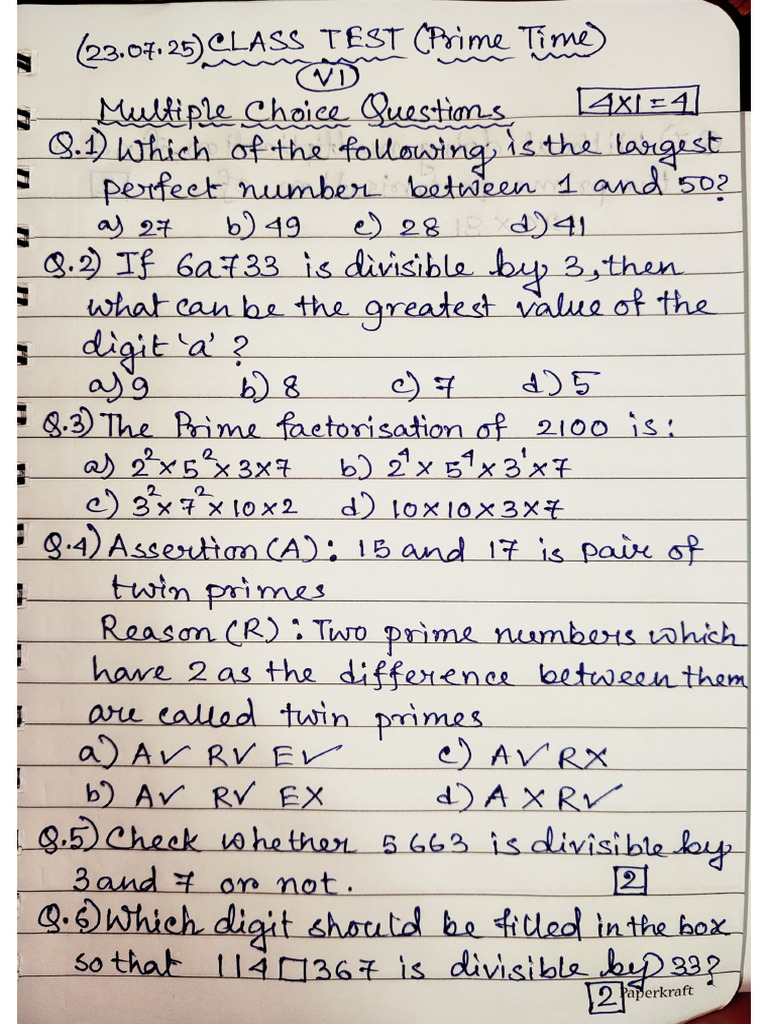 (23.07.25) CLASS TEST (Prime Time)
VI
Multiple Choice Questions 4x1=4
Q.1) Which of the following, is the largest
perfect number between 1 and 50?
a) 27 b) 49 c) 28 d) 41
Q.2) If 6a733 is divisible by 3, then
what can be the greatest value of the
digit 'a' ?
a) 9 b) 8 c) 7 d) 5
Q.3) The Prime factorisation of 2100 is :
a) 2²x5²x3x7 b) 2⁴x5⁴x3¹x7
c) 3²x7²x10x2 d) 10x10x3x7
Q.4) Assertion (A) : 15 and 17 is pair of
twin primes
Reason (R) : Two prime numbers which
have 2 as the difference between them
are called twin primes
a) A✓ R✓ E✓ c) A✓ RX
b) A✓ R✓ EX d) A X R✓
Q.5) Check whether 5663 is divisible by
3 and 7 or not. 2
Q.6) Which digit should be filled in the box
so that 114□367 is divisible by 33?
2 Paperkraft